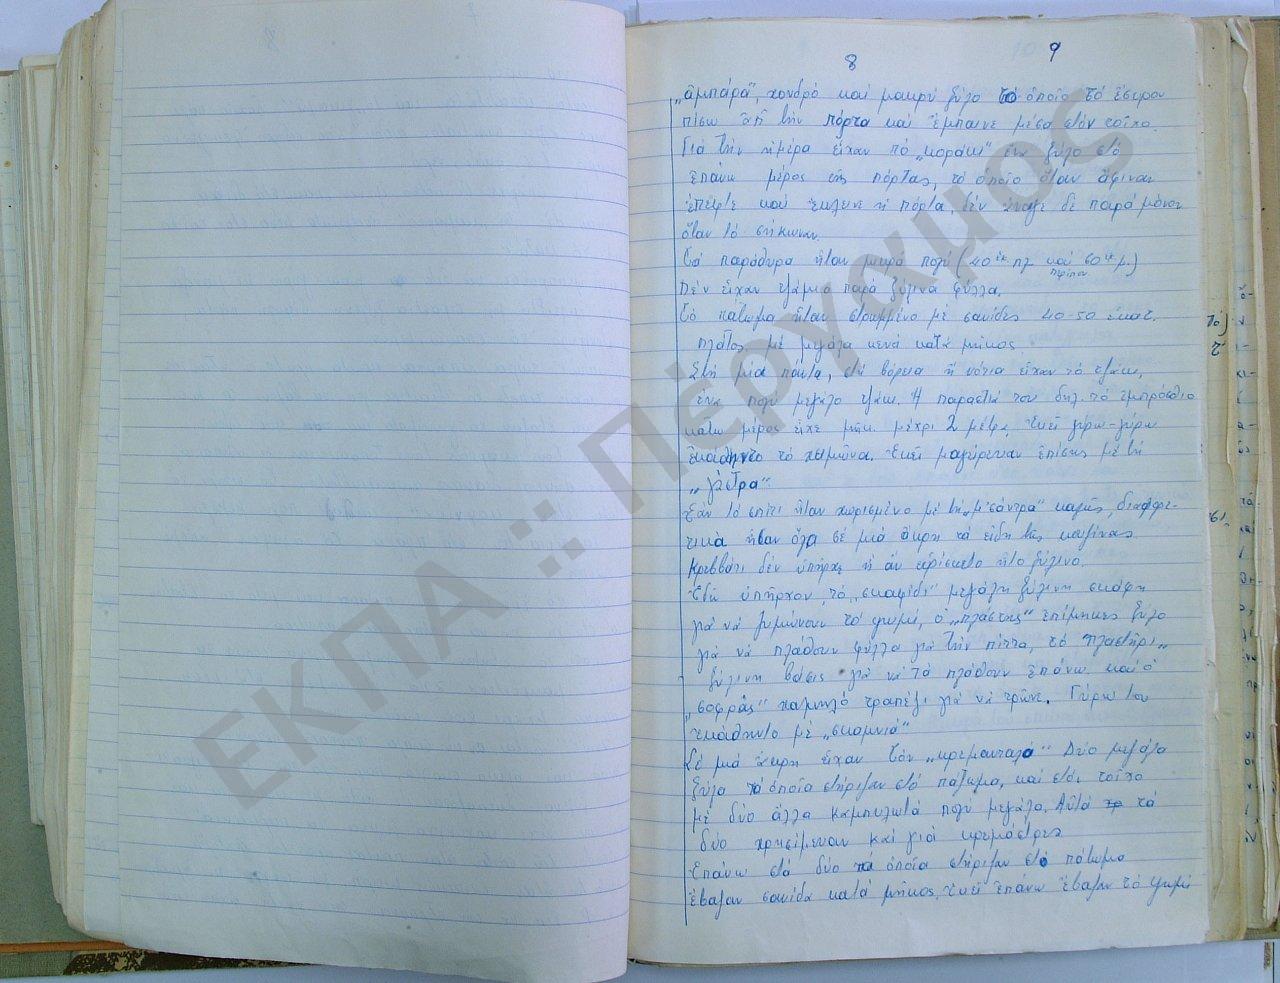 8 9
„ἀμπάρα", χονδρό καί μακρύ ξύλο τό ὁποῖο τό ἔσυραν
πίσω ἀπ' τήν πόρτα καί ἔμπαινε μέσα στόν τοῖχο.
Γιά τήν ἡμέρα εἶχαν τό „κοράκι" ἕνα ξύλο στό
ἐπάνω μέρος τῆς πόρτας, τό ὁποῖο ὅταν ἄφιναν
ἔπεφτε καί ἔκλεινε ἡ πόρτα, δέν ἄνοιγε δέ παρά μόνον
ὅταν τό σήκωναν.
Τά παράθυρα ἦταν μικρά πολύ (40 ἑκ. πλ. καί 60 ἑκ. μ.)
περίπου
Δέν εἶχαν τζάμια παρά ξύλινα φύλλα.
Τό πάτωμα ἦταν στρωμμένο μέ σανίδες 40-50 ἑκατ.
πλάτος, μέ μεγάλα κενά κατά μῆκος.
Στή μία πάντα, στή βόρεια ἤ νότια εἶχαν τό τζάκι,
ἕνα πολύ μεγάλο τζάκι. Ἡ παραστιά του δηλ. τό ἐμπρόσθιο
κάτω μέρος εἶχε μῆκ. μέχρι 2 μέτρ. Ἐκεῖ γύρω-γύρω
ἐκάθηντο τό χειμῶνα. Ἐκεῖ μαγείρευαν ἐπίσης μέ τή
„γάστρα"
Ἐάν τό σπίτι ἦταν χωρισμένο μέ τή „μεσάντρα" καλῶς, διαφορε-
τικά ἦταν ὅλα σέ μιά ἄκρη τά εἴδη τῆς κουζίνας
Κρεββάτι δέν ὑπῆρχε ἤ ἄν εὑρίσκετο ἦτο ξύλινο.
Ἐδῶ ὑπῆρχον, τό „σκαφίδι" μεγάλη ξύλινη σκάφη
γιά νά ζυμώνουν τό ψωμί, ὁ „πλάστης" ἐπίμηκες ξύλο
γιά νά πλάθουν φύλλα γιά τήν πίττα, τό "πλαστῆρι„
ξύλινη βάσις γιά νά τά πλάθουν ἐπάνω καί ὁ
„σοφρᾶς" χαμηλό τραπέζι γιά νά τρῶνε. Γύρω του
ἐκάθηντο μέ „σκαμνιά"
Σέ μιά ἄκρη εἶχαν τόν „κρεμανταλᾶ" Δύο μεγάλα
ξύλα τά ὁποῖα στήριζαν στό πάτωμα, καί στόν τοῖχο
μέ δύο ἄλλα καμπυλωτά πολύ μεγάλα. Αὐτά τά
δύο χρησίμευαν καί γιά κρεμάστρες
Ἐπάνω στά δύο τά ὁποῖα στήριζαν στό πάτωμα
ἔβαζαν σανίδα κατά μῆκος, ἐκεῖ ἐπάνω ἔβαζαν τό ψωμί
ΕΚΠΑ :: Πέργαμος